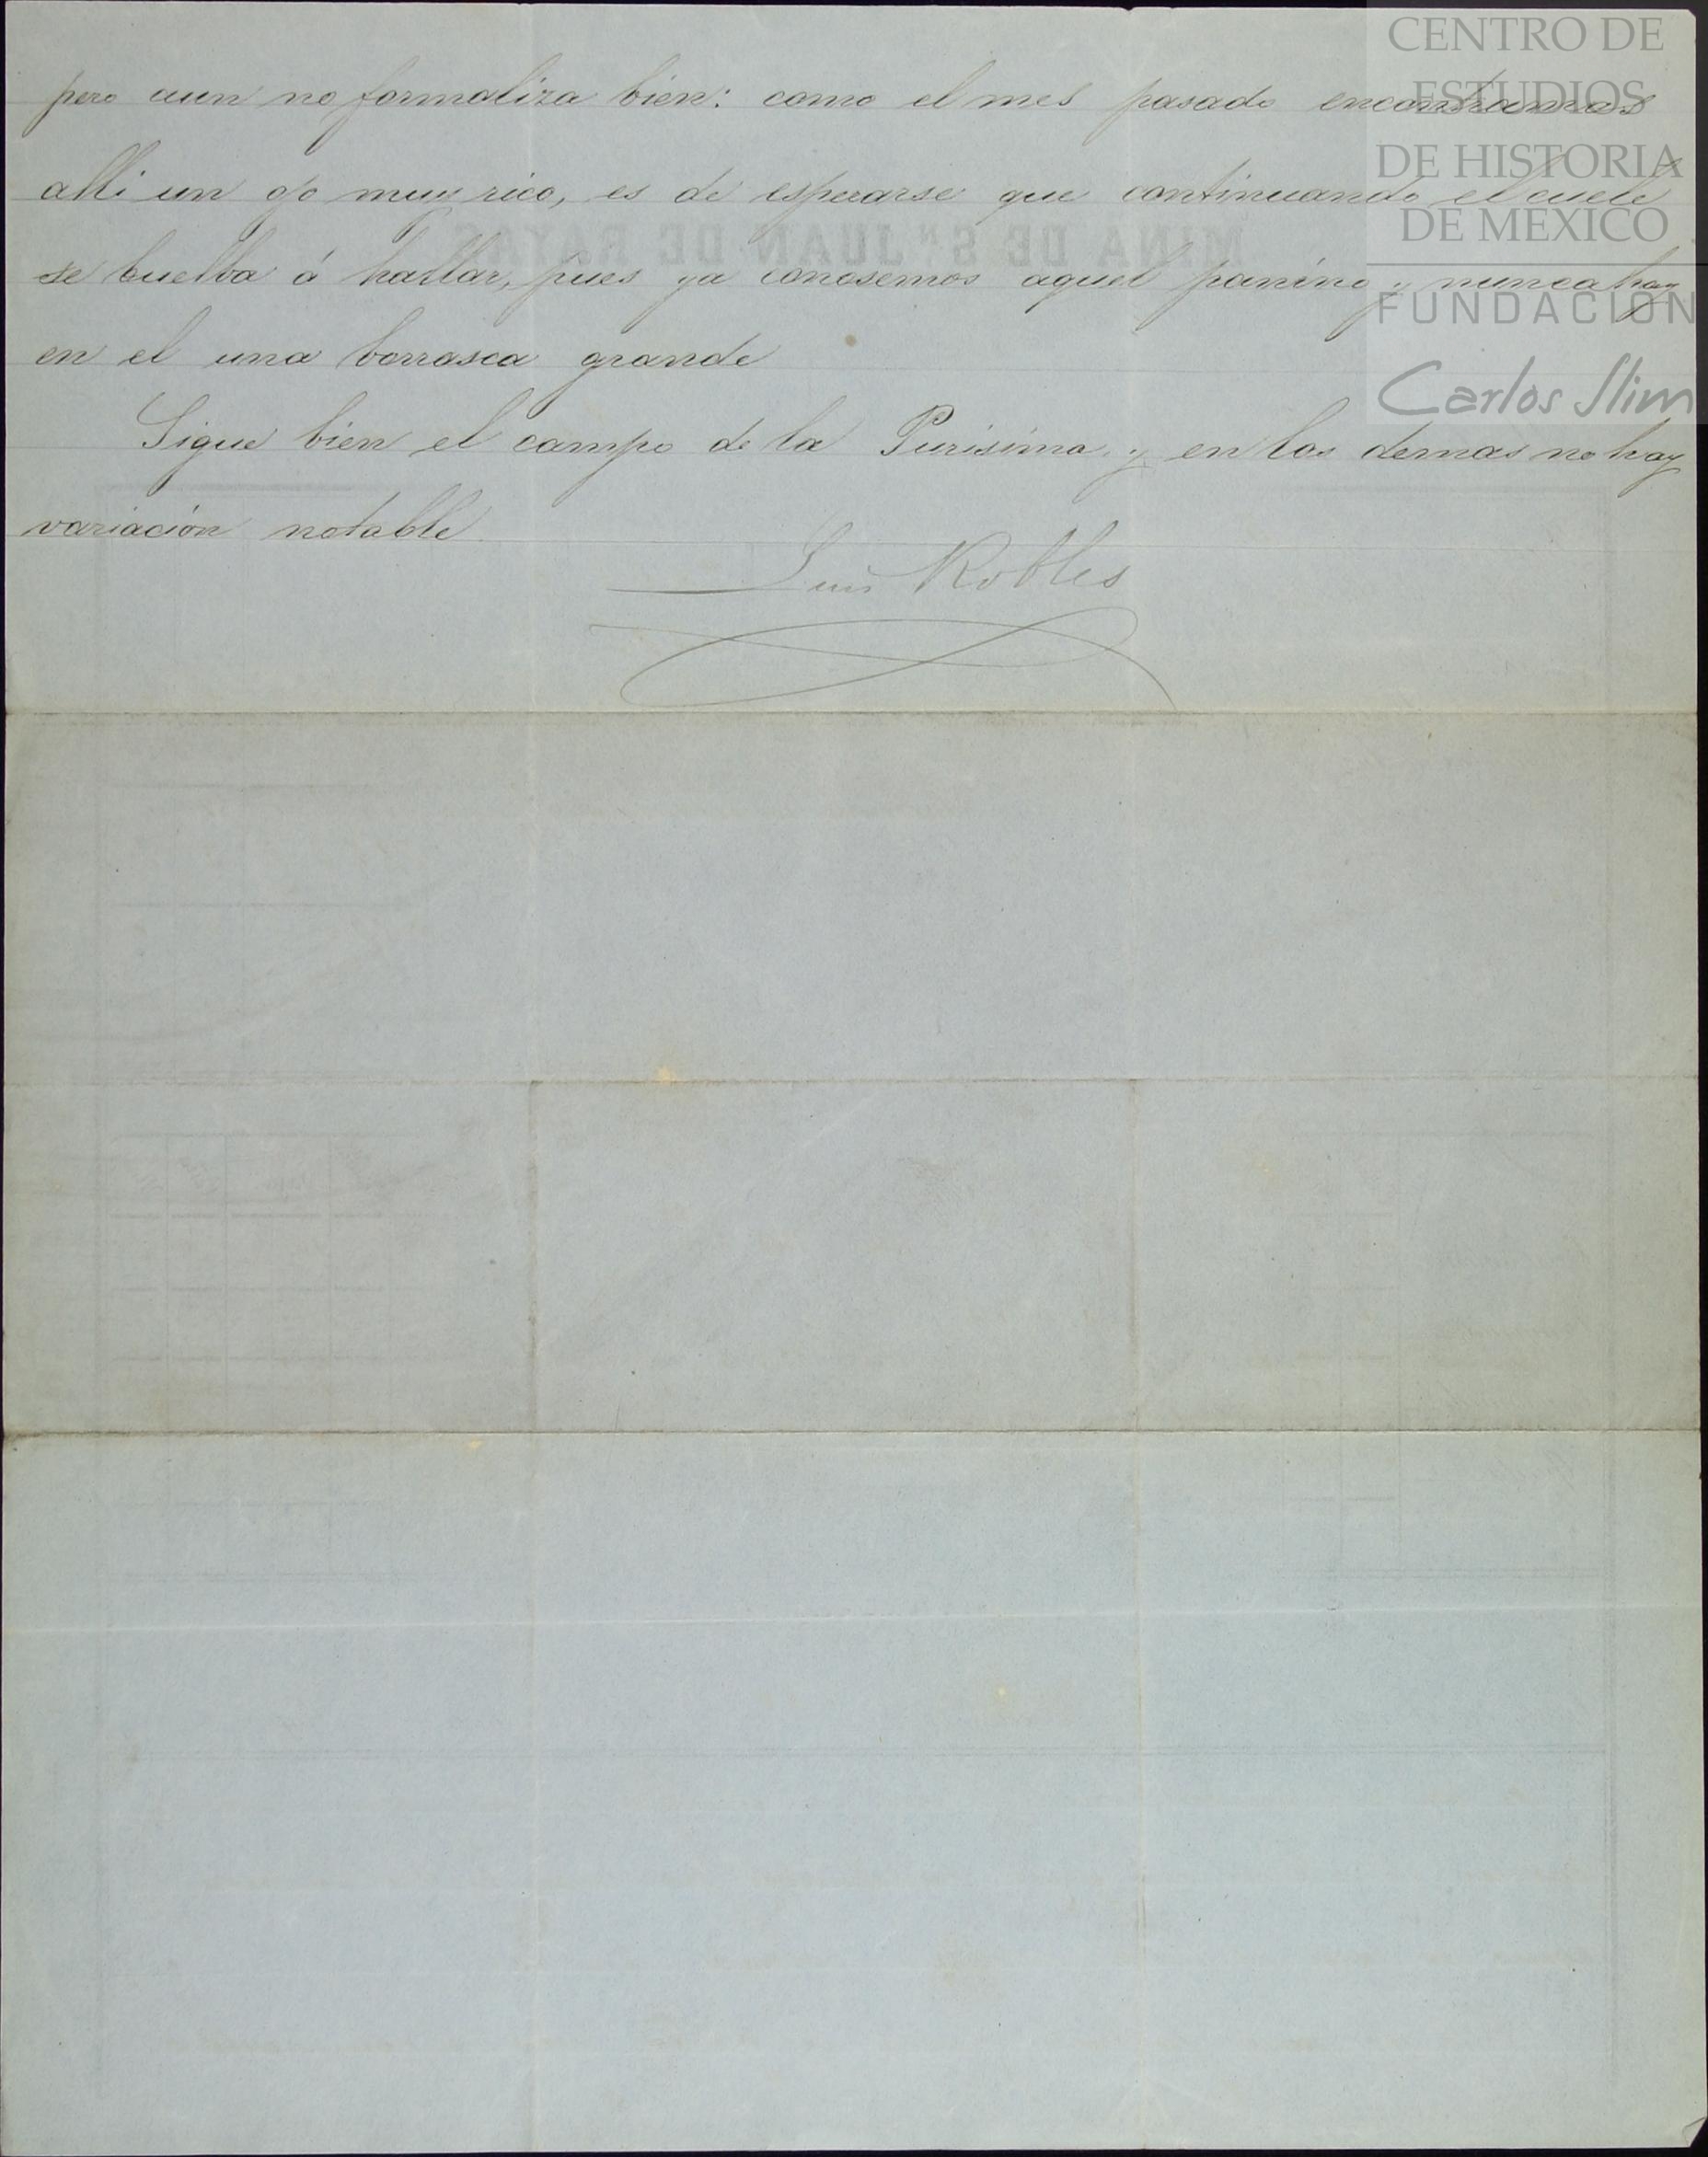 pero aun no formaliza bien: como el mes pasado encontramos
alli un ojo muy rico, es de esperarse que continuando el cuele
se buelba á hallar, pues ya conosemos aquel panino y nunca hay
en el una borrasca grande
Sigue bien el campo de la Purisima, y en los demas no hay
variación notable.
Luis Robles
MINA DE Sn. JUAN DE RAYAS
CENTRO DE
ESTUDIOS
DE HISTORIA
DE MEXICO
FUNDACIÓN
Carlos Slim